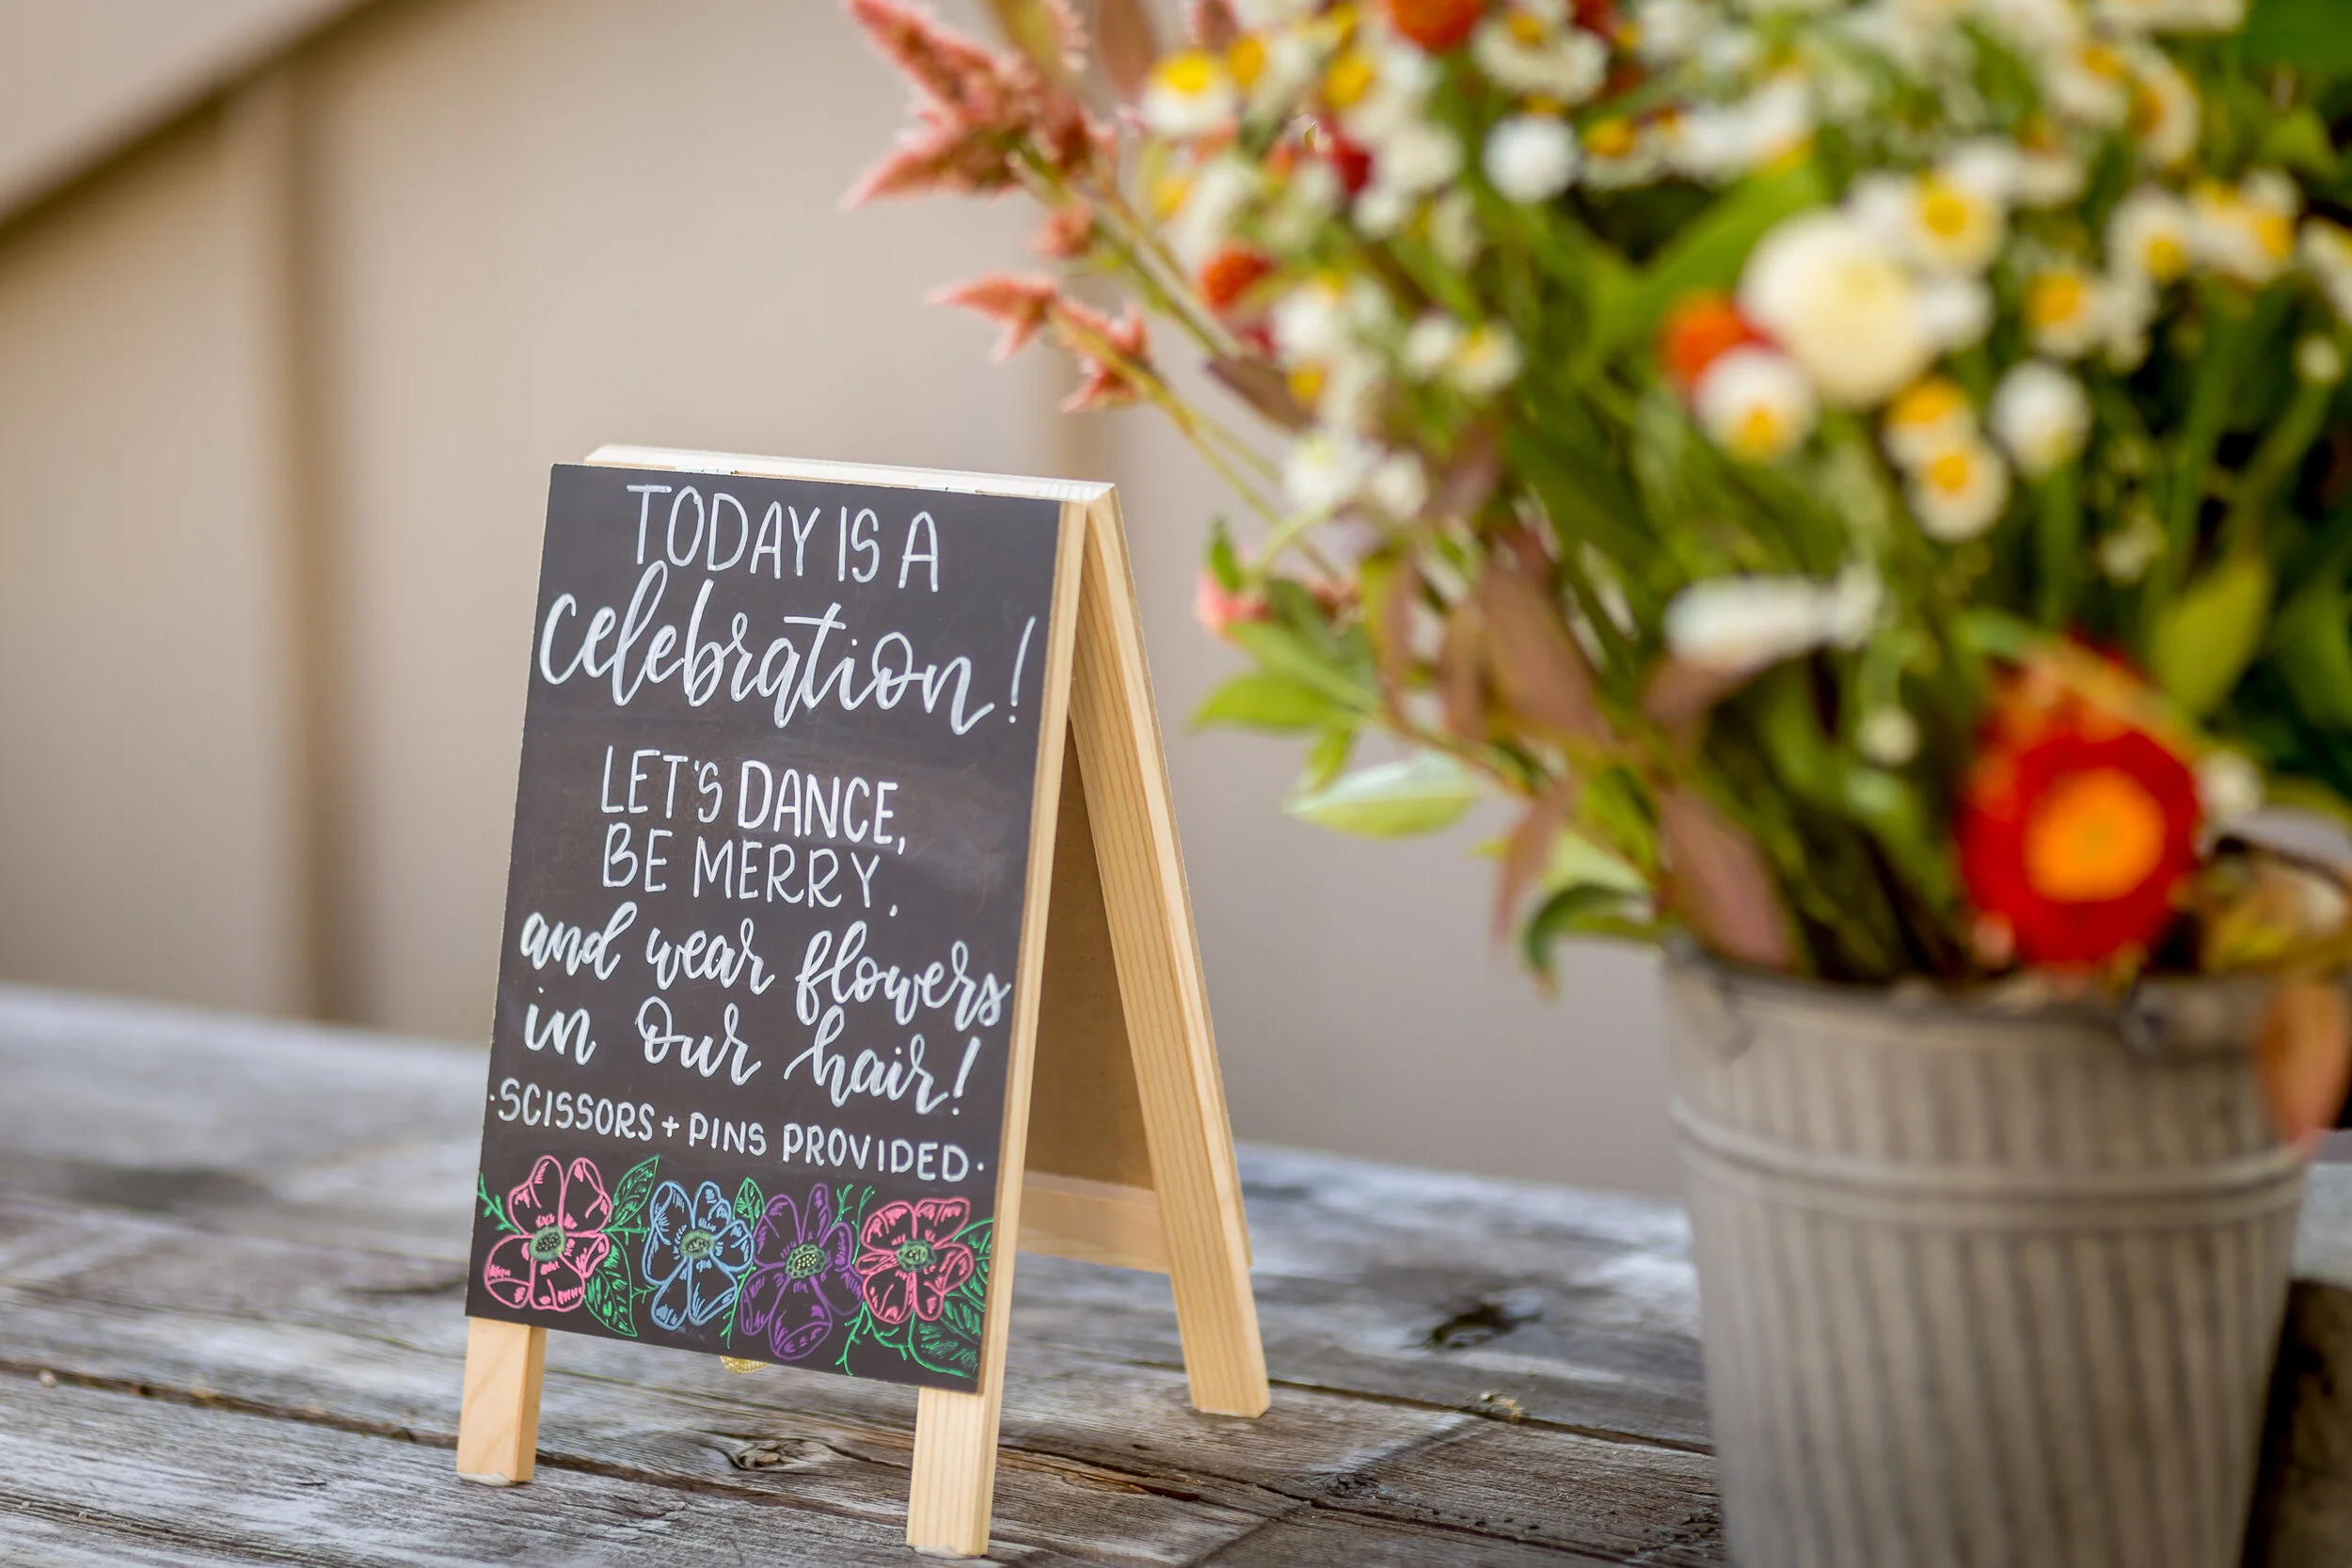 TODAY IS A
celebration!
LET'S DANCE,
BE MERRY,
and wear flowers
in our hair!
·SCISSORS + PINS PROVIDED·